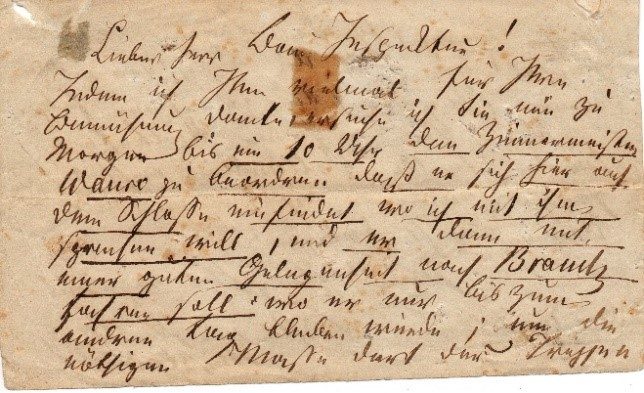 Lieber Herr Bau Inspektor!
Indem ich Ihnen vielmal für Ihre
Bemühung danke, ersuche ich Sie nun zu
Morgen bis um 10 Uhr den Zimmermeister
zu beordren daß er sich hier auf
dem Schloße einfindet wo ich mit ihm
sprechen will, und er dann mit
einer guten Gelegenheit nach Branitz
fahren soll wo er nur bis zum
andren Tag bleiben würde, um die
nöthigen Maße dort der Treppen